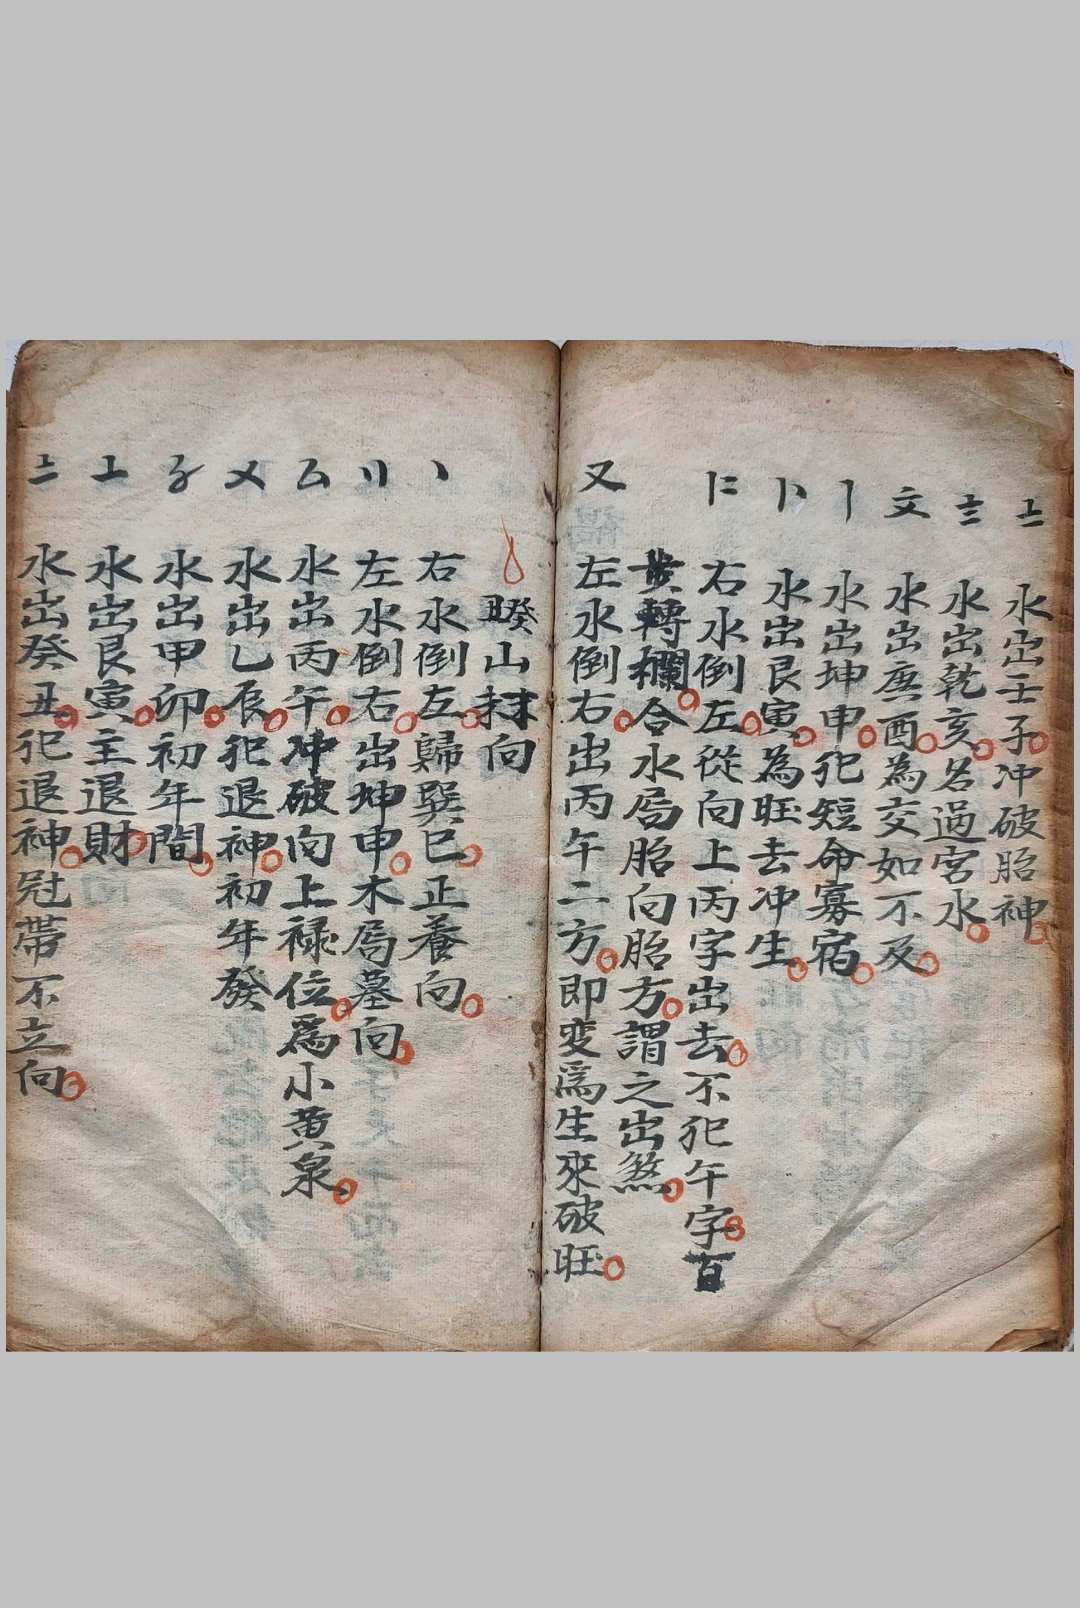 〦 水出壬子冲破胎神
〨 水出乾亥名過宮水
文 水出庚酉為交如不及
〡 水出坤申犯短命寡宿
卜 水出艮寅為旺去冲生
右水倒左從向上丙字出去不犯午字百
黄轉欄合水局胎向胎方謂之出煞
又 左水倒右出丙午二方即变為生來破旺
山向
丶 右水倒左歸巽巳正養向
〢 左水倒右出坤申木局墓向
厶 水出丙午冲破向上禄位為小黄泉
〤 水出乙辰犯退神初年發
水出甲卯初年間
〦 水出艮寅主退財
〧 水出癸丑犯退神冠帶不立向